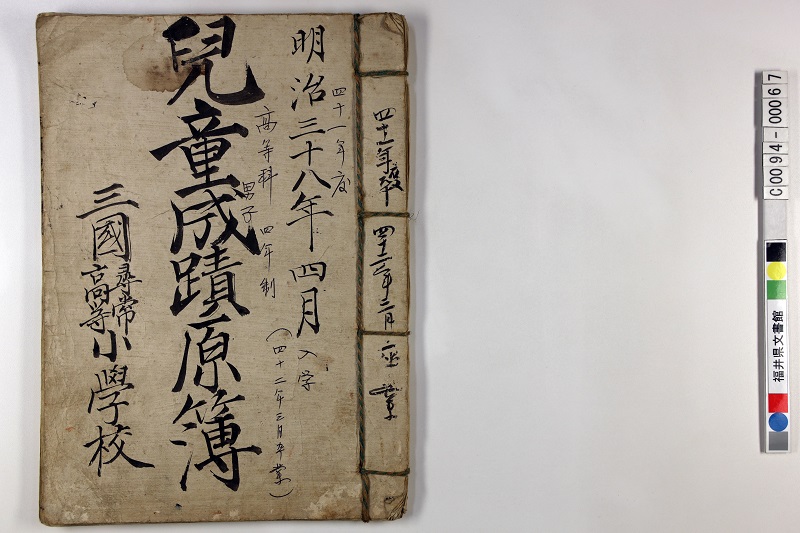 四十一年度 四十二年三月 卒業
明治三十八年四月入学
四十一年度
高等科 男子 四年制
(四十二年三月卒業)
兒童成蹟原簿
三國尋常高等小學校
C0094-00067
福井県文書館